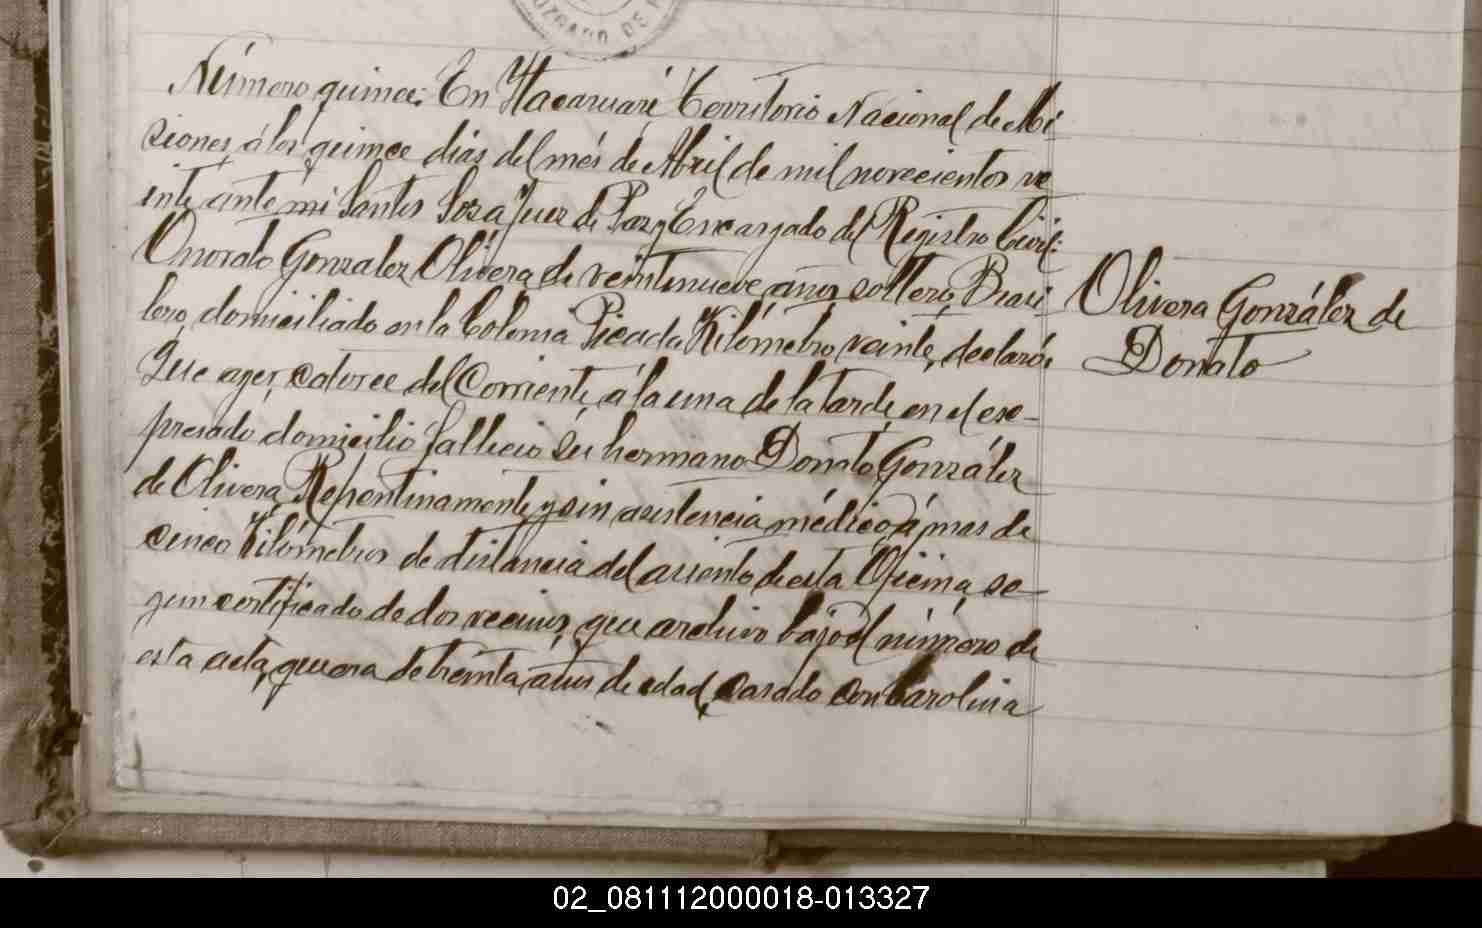 JUZGADO DE P
Número quince: En Itacaruaré Territorio Nacional de Mi
siones á los quince dias del més de Abril de mil novecientos ve
inte, ante mi Santos Sosa Juez de Paz y Encargado del Registro Civil:
Onorato Gonzalez Olivera de veintinueve años soltero, Brasi
lero, domiciliado en la Colonia Picada Kilómetro veinte, declaró:
Que ayer, catorce del Corriente, á la una de la tarde, en el ex-
presado domicilio fallecio su hermano Donato González
de Olivera, Repentinamente y sin asistencia médica, á mas de
cinco Kilómetros de distancia del asiento de esta Oficina, se-
gun certificado de dos vecinos, que archivo bajo el número de
esta acta, que era de treinta años de edad, casado con Carolina
Olivera González de
Donato
02_081112000018-013327